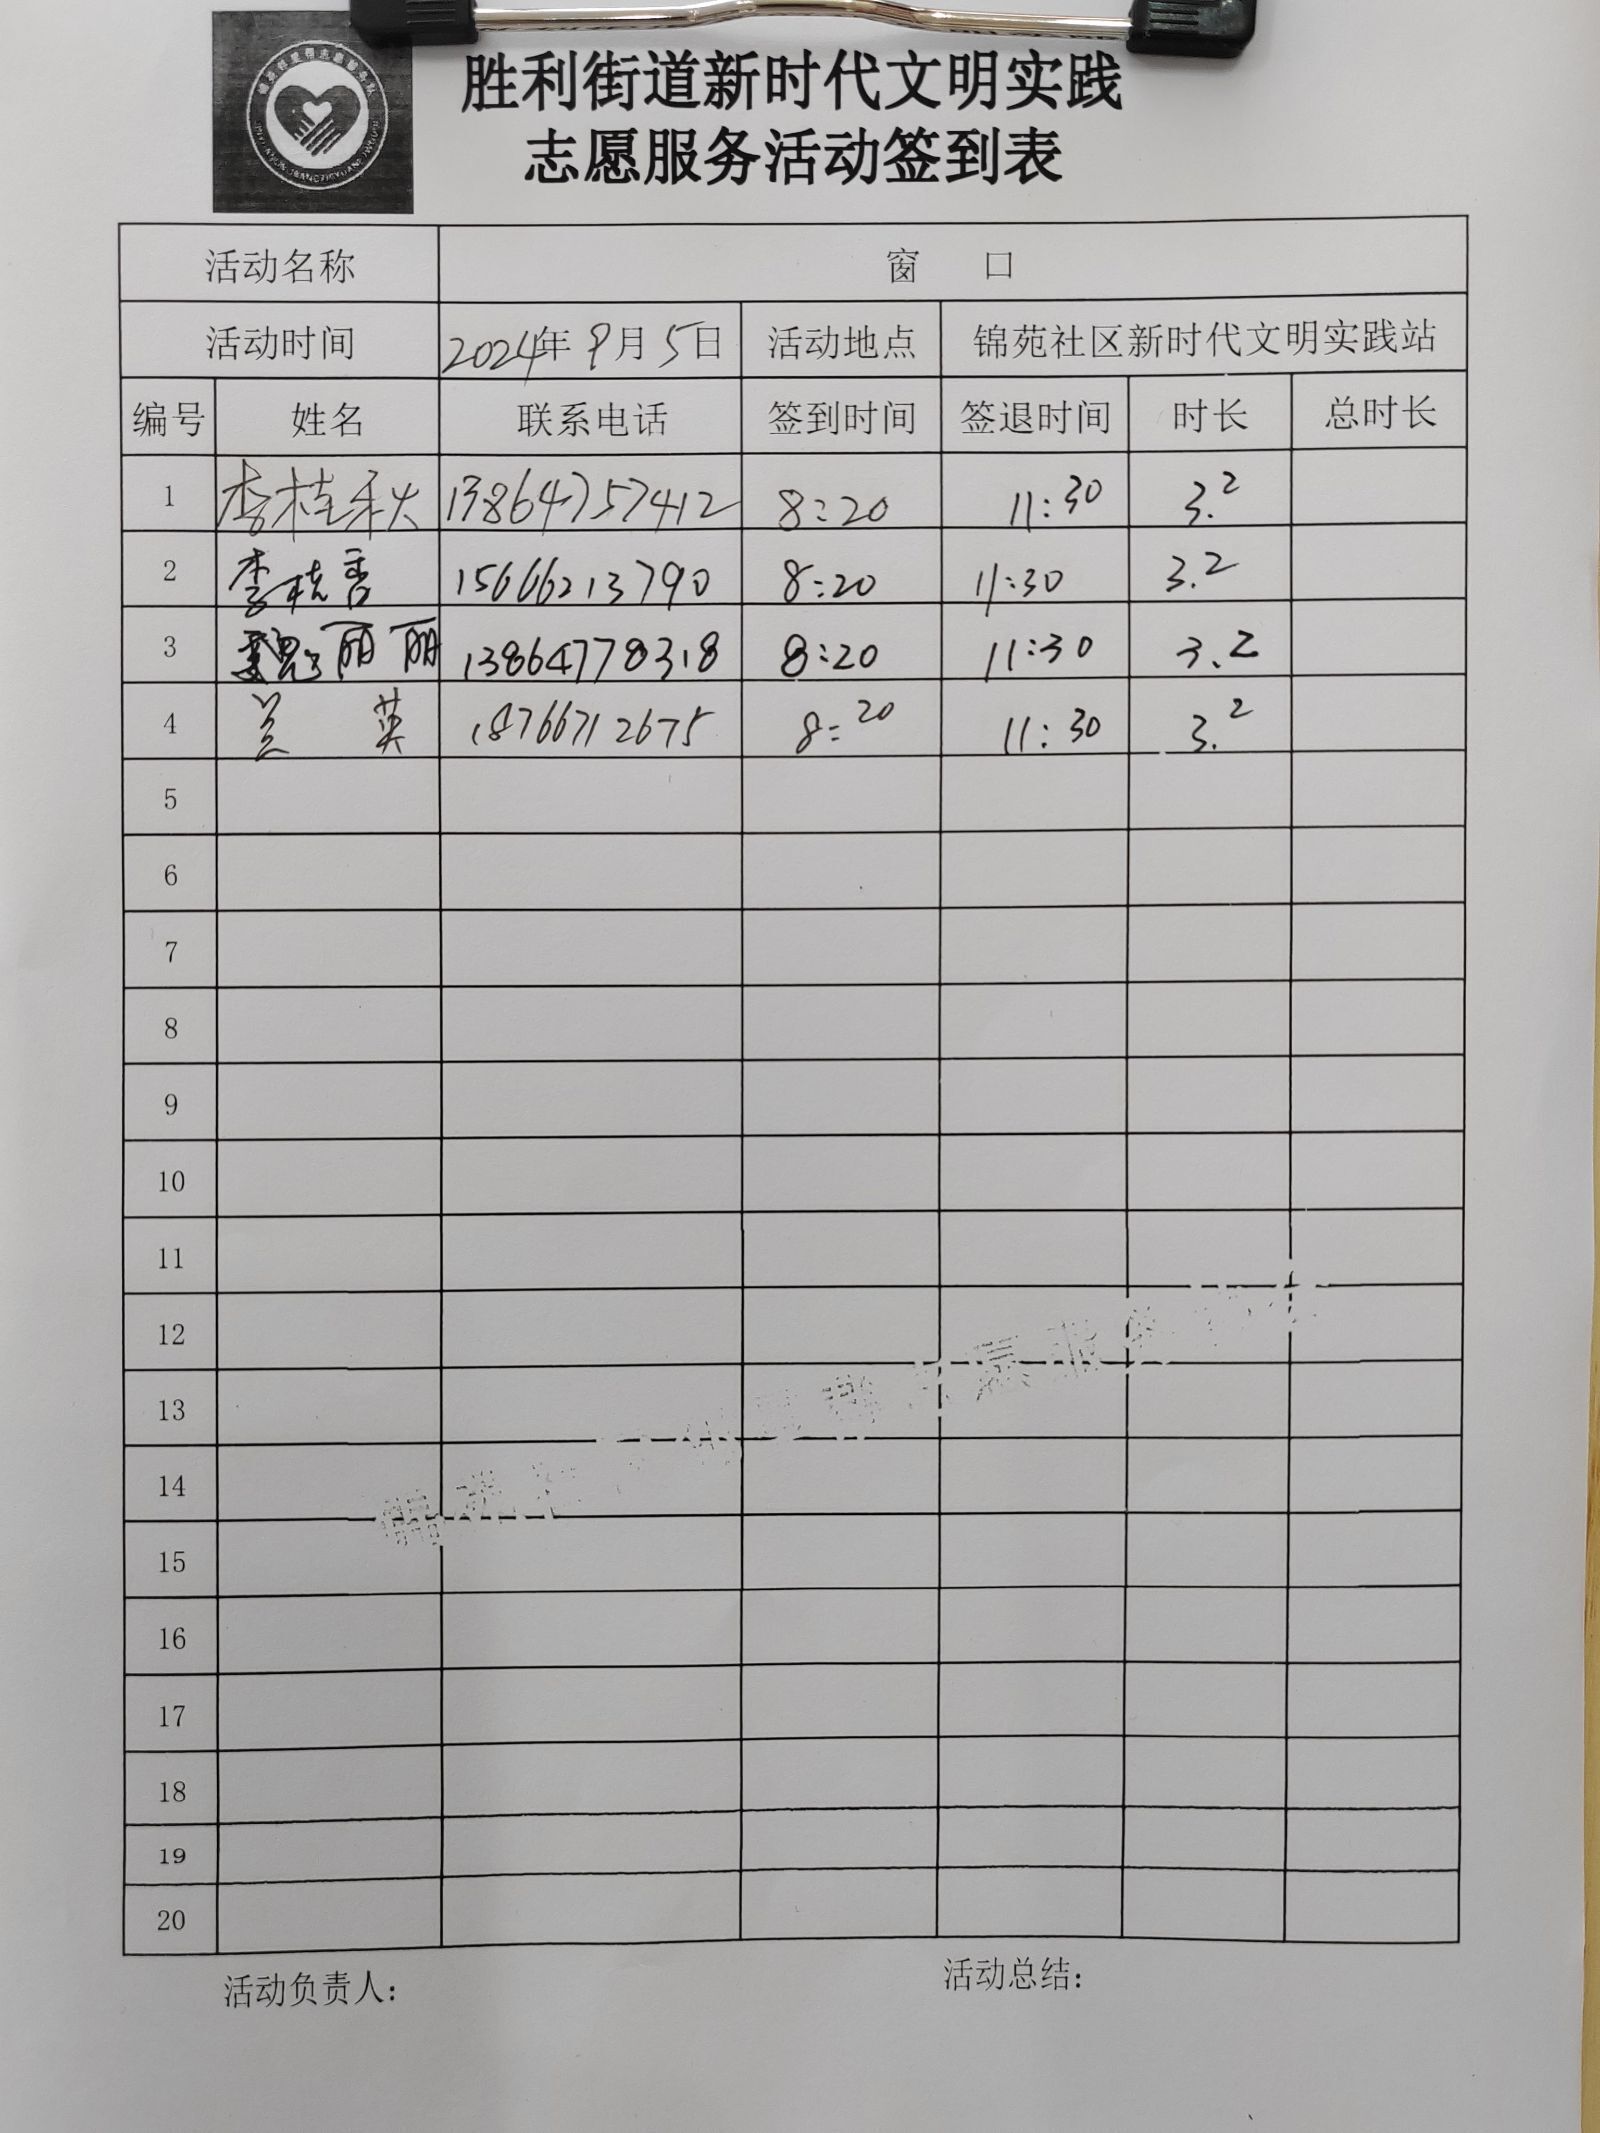 胜利街道新时代文明实践
志愿服务活动签到表
活动名称 窗 口
活动时间 2024年9月5日 活动地点 锦苑社区新时代文明实践站
编号 姓名 联系电话 签到时间 签退时间 时长 总时长
1 李桂秋 13864757412 8:20 11:30 3.2
2 李桂香 15666213790 8:20 11:30 3.2
3 魏丽丽 13864778318 8:20 11:30 3.2
4 兰 英 18766712675 8:20 11:30 3.2
5
6
7
8
9
10
11
12
13
14
15
16
17
18
19
20
活动负责人: 活动总结: